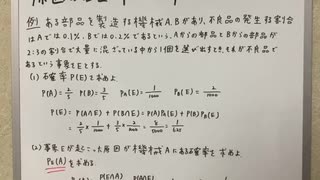 例) ある部品を製造する機械A,Bがあり、不良品の発生する割合
はAでは0.1%、Bでは0.2%であるという。Aからの部品とBからの部品が
2:3の割合で大量に混ざっている中から1個を選び出すとき、それが不良品で
あるという事象をEとする。
(1) 確率P(E)を求めよ。
P(A)=2/5 P(B)=3/5 P_A(E)=1/1000 P_B(E)=2/1000
P(E)=P(A∩E)+P(B∩E)=P(A)P_A(E)+P(B)P_B(E)
=2/5×1/1000+3/5×2/1000=8/5000=1/625
(2) 事象Eが起こった原因が機械Aにある確率を求めよ。
P_E(A)を求める。
P(E∩A) P(A∩E)